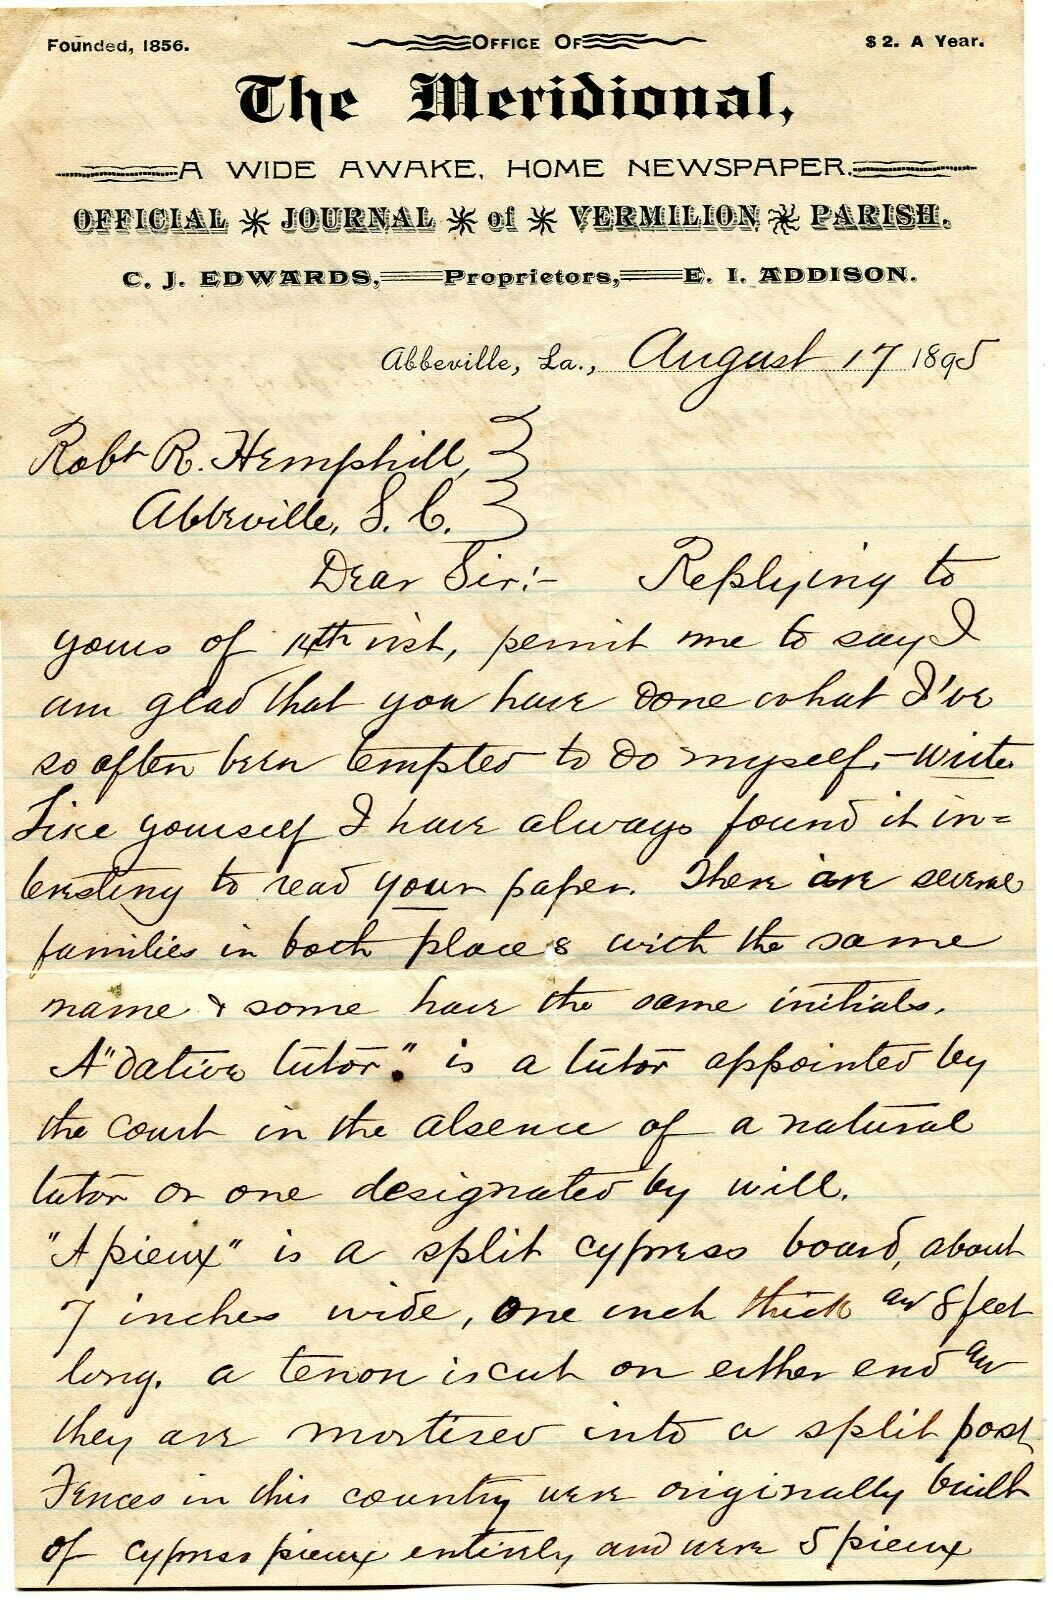 Founded, 1856.
OFFICE OF
$2. A Year.
The Meridional,
A WIDE AWAKE, HOME NEWSPAPER.
OFFICIAL JOURNAL of VERMILION PARISH.
C. J. EDWARDS, Proprietors, E. I. ADDISON.
Abbeville, La., August 17 1895
Robt R. Hemphill,
Abbeville, S. C.
Dear Sir:- Replying to
yours of 14th inst, permit me to say I
am glad that you have done what I've
so often been tempted to do myself,- write
Like yourself I have always found it in=
teresting to read your paper. There are several
families in both places with the same
name & some have the same initials.
A "dative tutor." is a tutor appointed by
the court in the absence of a natural
tutor or one designated by will.
"A pieux" is a split cypress board, about
7 inches wide, one inch thick and 8 feet
long. a tenon is cut on either end and
they are mortised into a split post
Fences in this country were originally built
of cypress pieux entirely and were 5 pieux